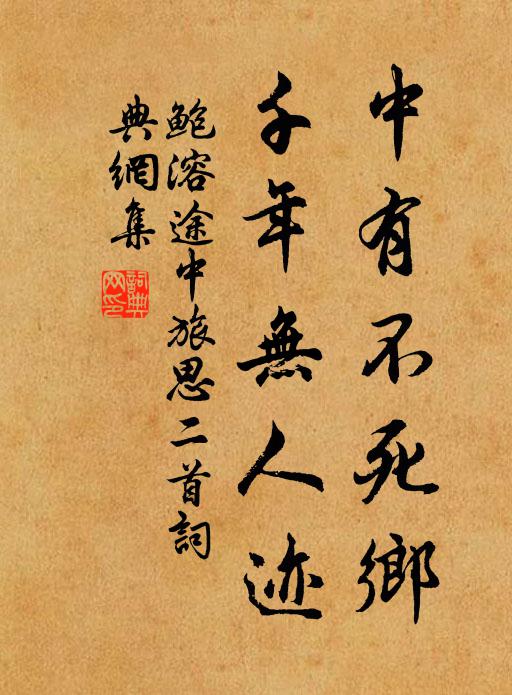 中有不死鄉
千年無人迹
鮑溶途中旅思二首詞
典網集
詞典
网印